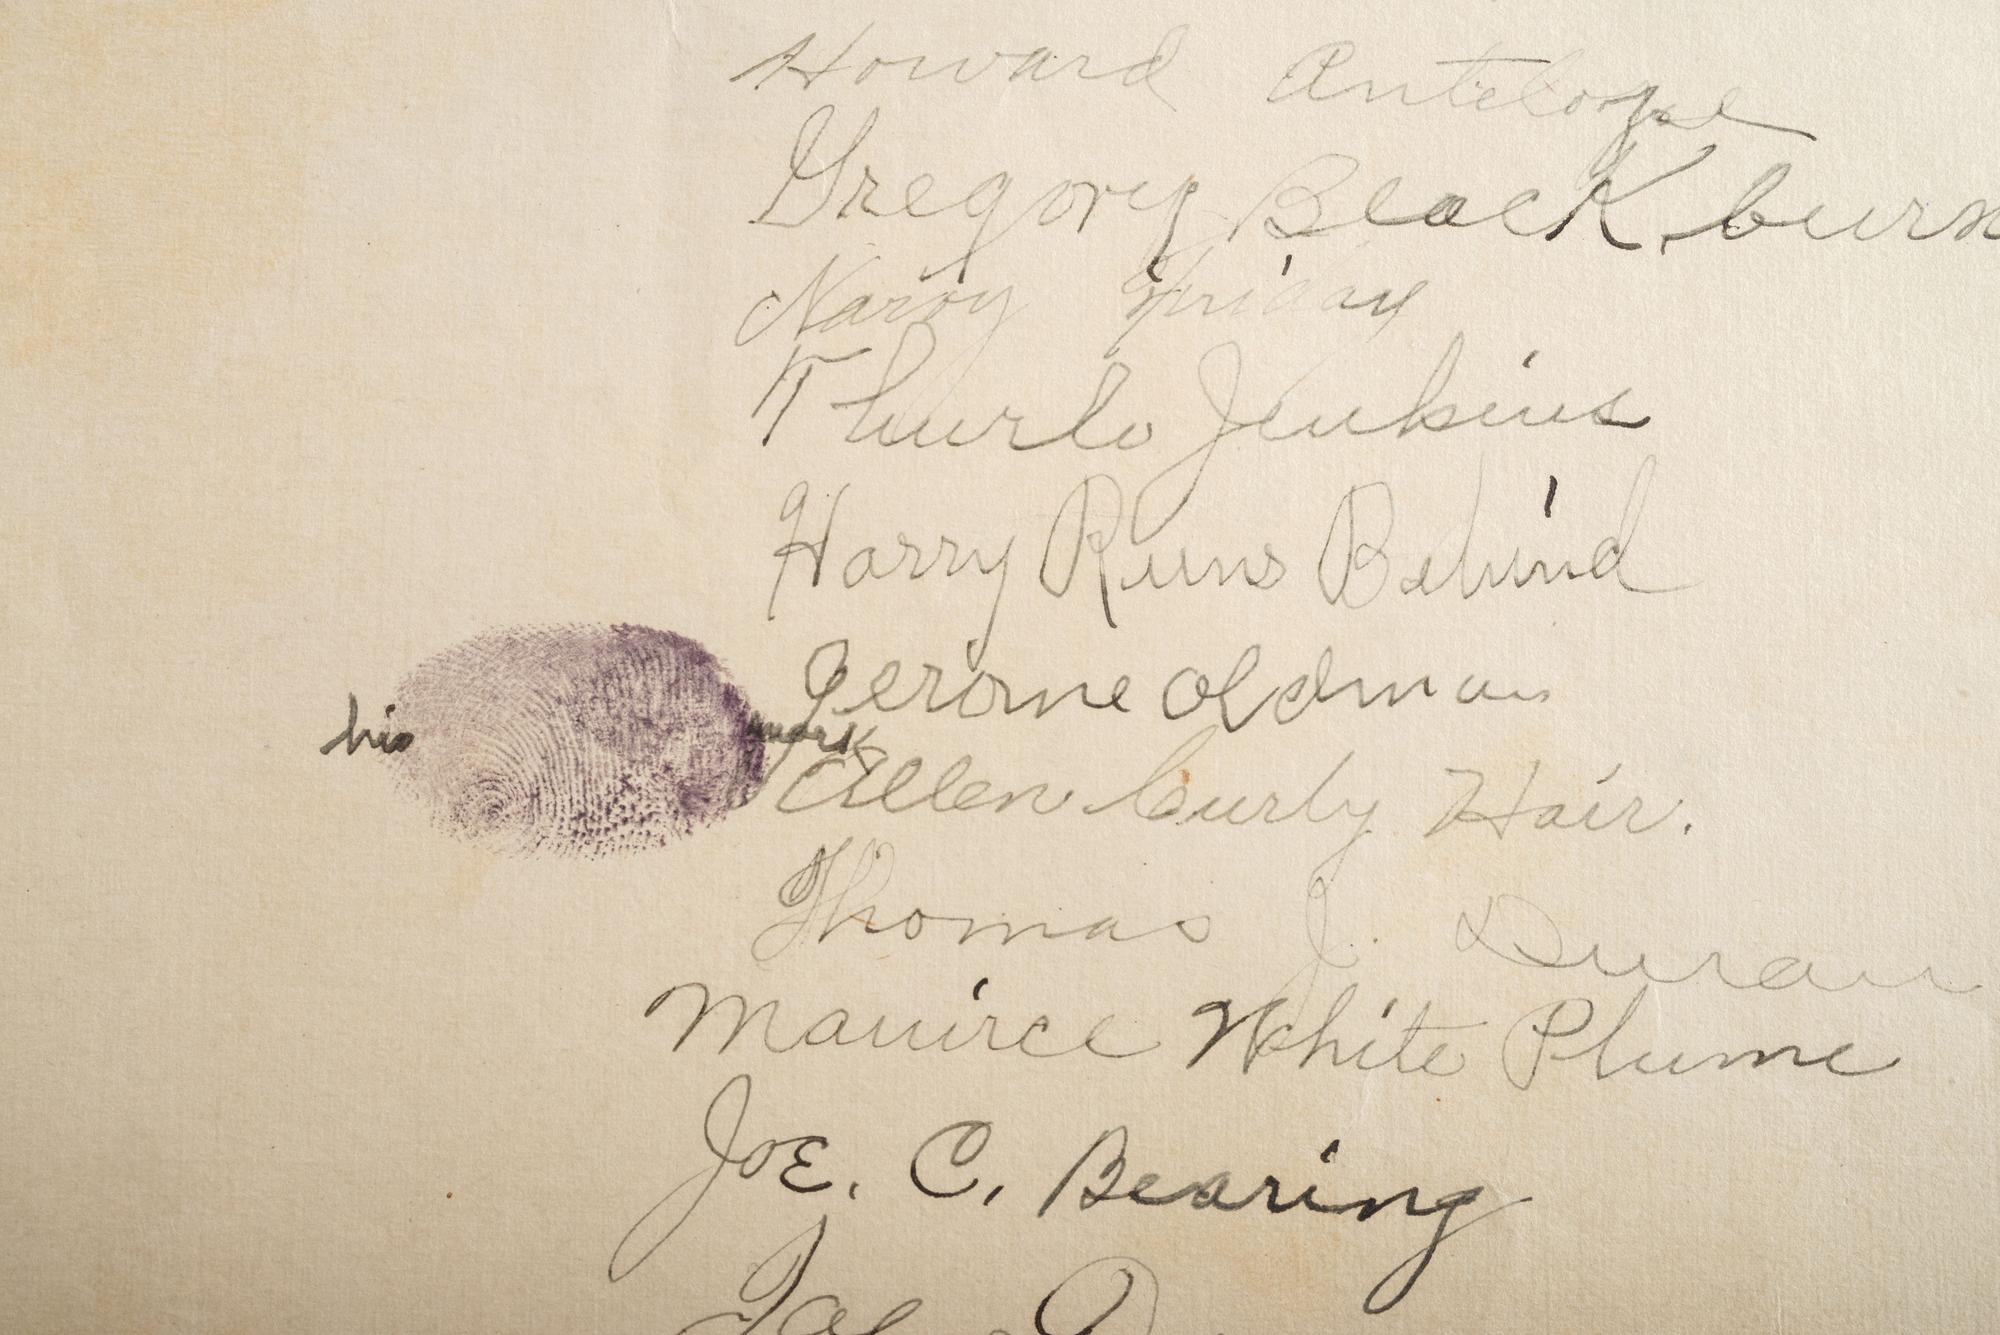 Howard Antelope
Gregory BlacK burn
Friday
Thurlo Jenkins
Harry Runs Behind
Jerome oldman
his mark
Allen Curly Hair.
Thomas J. Duran
Maurice White Plume
JoE. C. Bearing